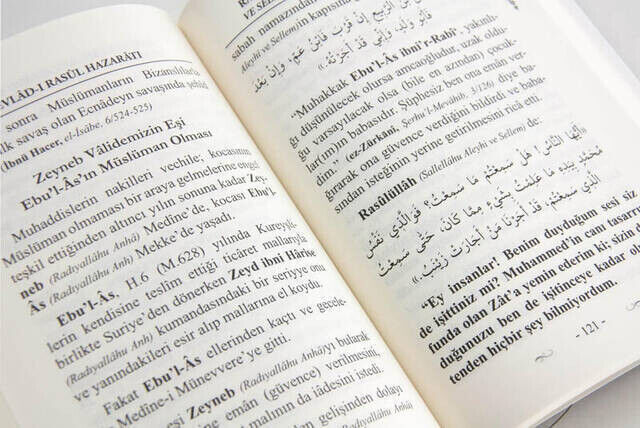 EVLÂD-I RASÛL HAZARÂTI
sonra Müslümanların Bizanslılarla
ilk savaş olan Ecnâdeyn savaşında şehid
(İbnü Hacer, el-İsâbe, 6/524-525)
Zeyneb Vâlidemizin Eşi
Ebu'l-Âs'ın Müslüman Olması
Muhaddislerin nakilleri vechile; kocasının
Müslüman olmaması bir araya gelmelerine engel
teşkil ettiğinden altıncı yılın sonuna kadar Zey-
neb (Radıyallâhu Anhâ) Medîne'de, kocası Ebu'l-
Âs (Radıyallâhu Anh) Mekke'de yaşadı.
Ebu'l-Âs, H.6 (M.628) yılında Kureyşli-
lerin kendisine teslim ettiği ticâret mallarıyla
birlikte Sûriye'den dönerken Zeyd ibni Hârise
(Radıyallâhu Anh) kumandasındaki bir seriyye onu
ve yanındakileri esir alıp mallarına el koydu.
Fakat Ebu'l-Âs ellerinden kaçtı ve gece-
Medîne-i Münevvere'ye gitti.
eşi Zeyneb (Radıyallâhu Anhâ)yı bularak
emân (güvence) verilmesini,
malının da iâdesini istedi.
gelişinden dolayı
(Radıyallâhu Anhâ)
VE SELLEM
sabah namazından
Aleyhi ve Sellem)in kapısına
"Muhakkak Ebu'l-Âs ibni'r-Rabî', yakınlı-
ğı düşünülecek olursa amcaoğludur, uzak oldu-
ğu varsayılacak olsa (bile en azından) çocuk-
lar(ım)ın babasıdır. Şüphesiz ben ona emân ver-
dim." (ez-Zürkânî, Şerhu'l-Mevâhib, 3/126) diye ba-
ğırarak ona güvence verdiğini bildirdi ve baba-
sından isteğinin yerine getirilmesini ricâ etti.
Rasûlüllâh (Sallellâhu Aleyhi ve Sellem) de:
«أَيُّهَا النَّاسُ! هَلْ سَمِعْتُمْ مَا سَمِعْتُ؟ فَوَالَّذِي نَفْسُ
مُحَمَّدٍ بِيَدِهِ مَا عَلِمْتُ بِشَيْءٍ مِمَّا كَانَ، حَتَّى سَمِعْتُ
"Ey insanlar! Benim duyduğum sesi siz
de işittiniz mi? Muhammed'in canı tasarru-
funda olan Zât'a yemin ederim ki; sizin duy-
duğunuzu ben de işitinceye kadar
tenden hiçbir şey bilmiyordum.
- 121 -